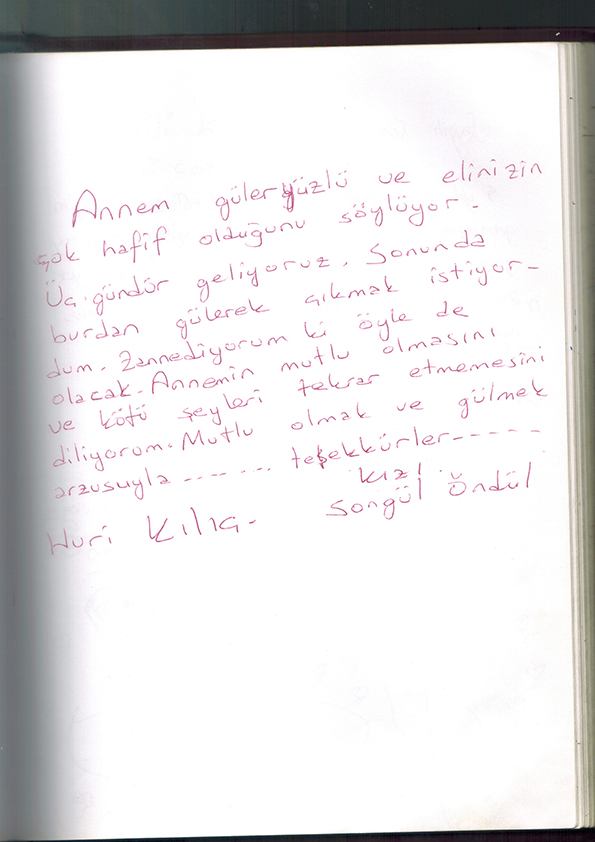 Annem güleryüzlü ve elinizin
çok hafif olduğunu söylüyor.
Üç gündür geliyoruz. Sonunda
burdan gülerek çıkmak istiyor-
dum. Zannediyorum ki öyle de
olacak. Annemin mutlu olmasını
ve kötü şeyleri tekrar etmemesini
diliyorum. Mutlu olmak ve gülmek
arzusuyla ------- teşekkürler-----
Kızı
Nuri Kılıç- Songül Öndül